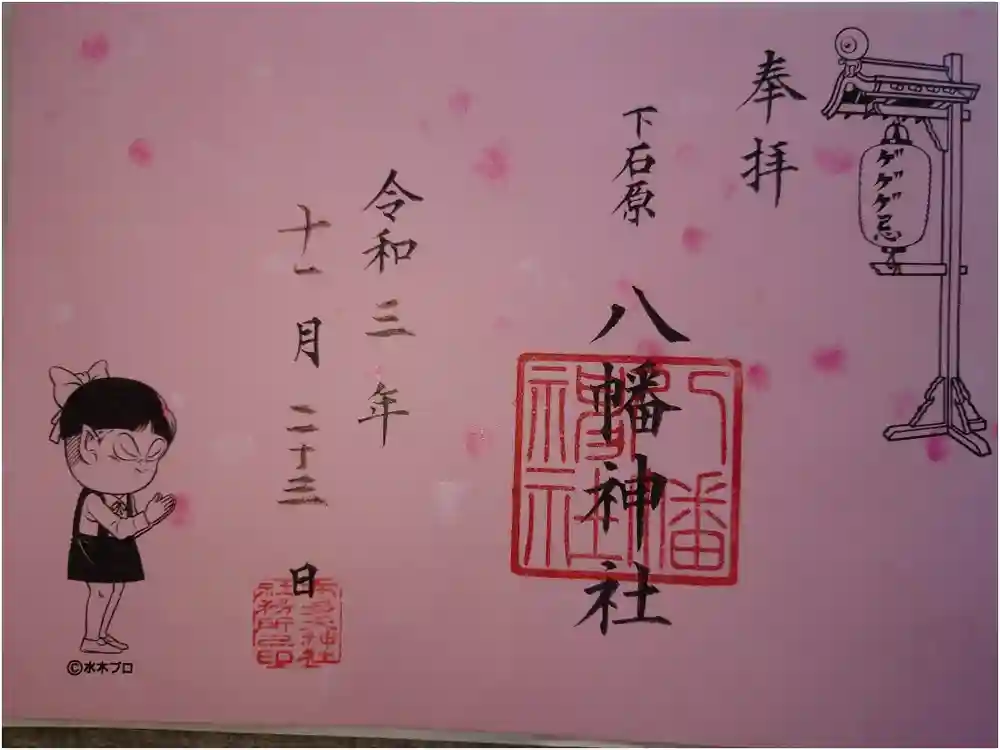 ゲゲゲ忌
奉拝
下石原
八幡神社
八幡神社
令和三年
十一月二十三日
布多天神社
社務所之印
©水木プロ